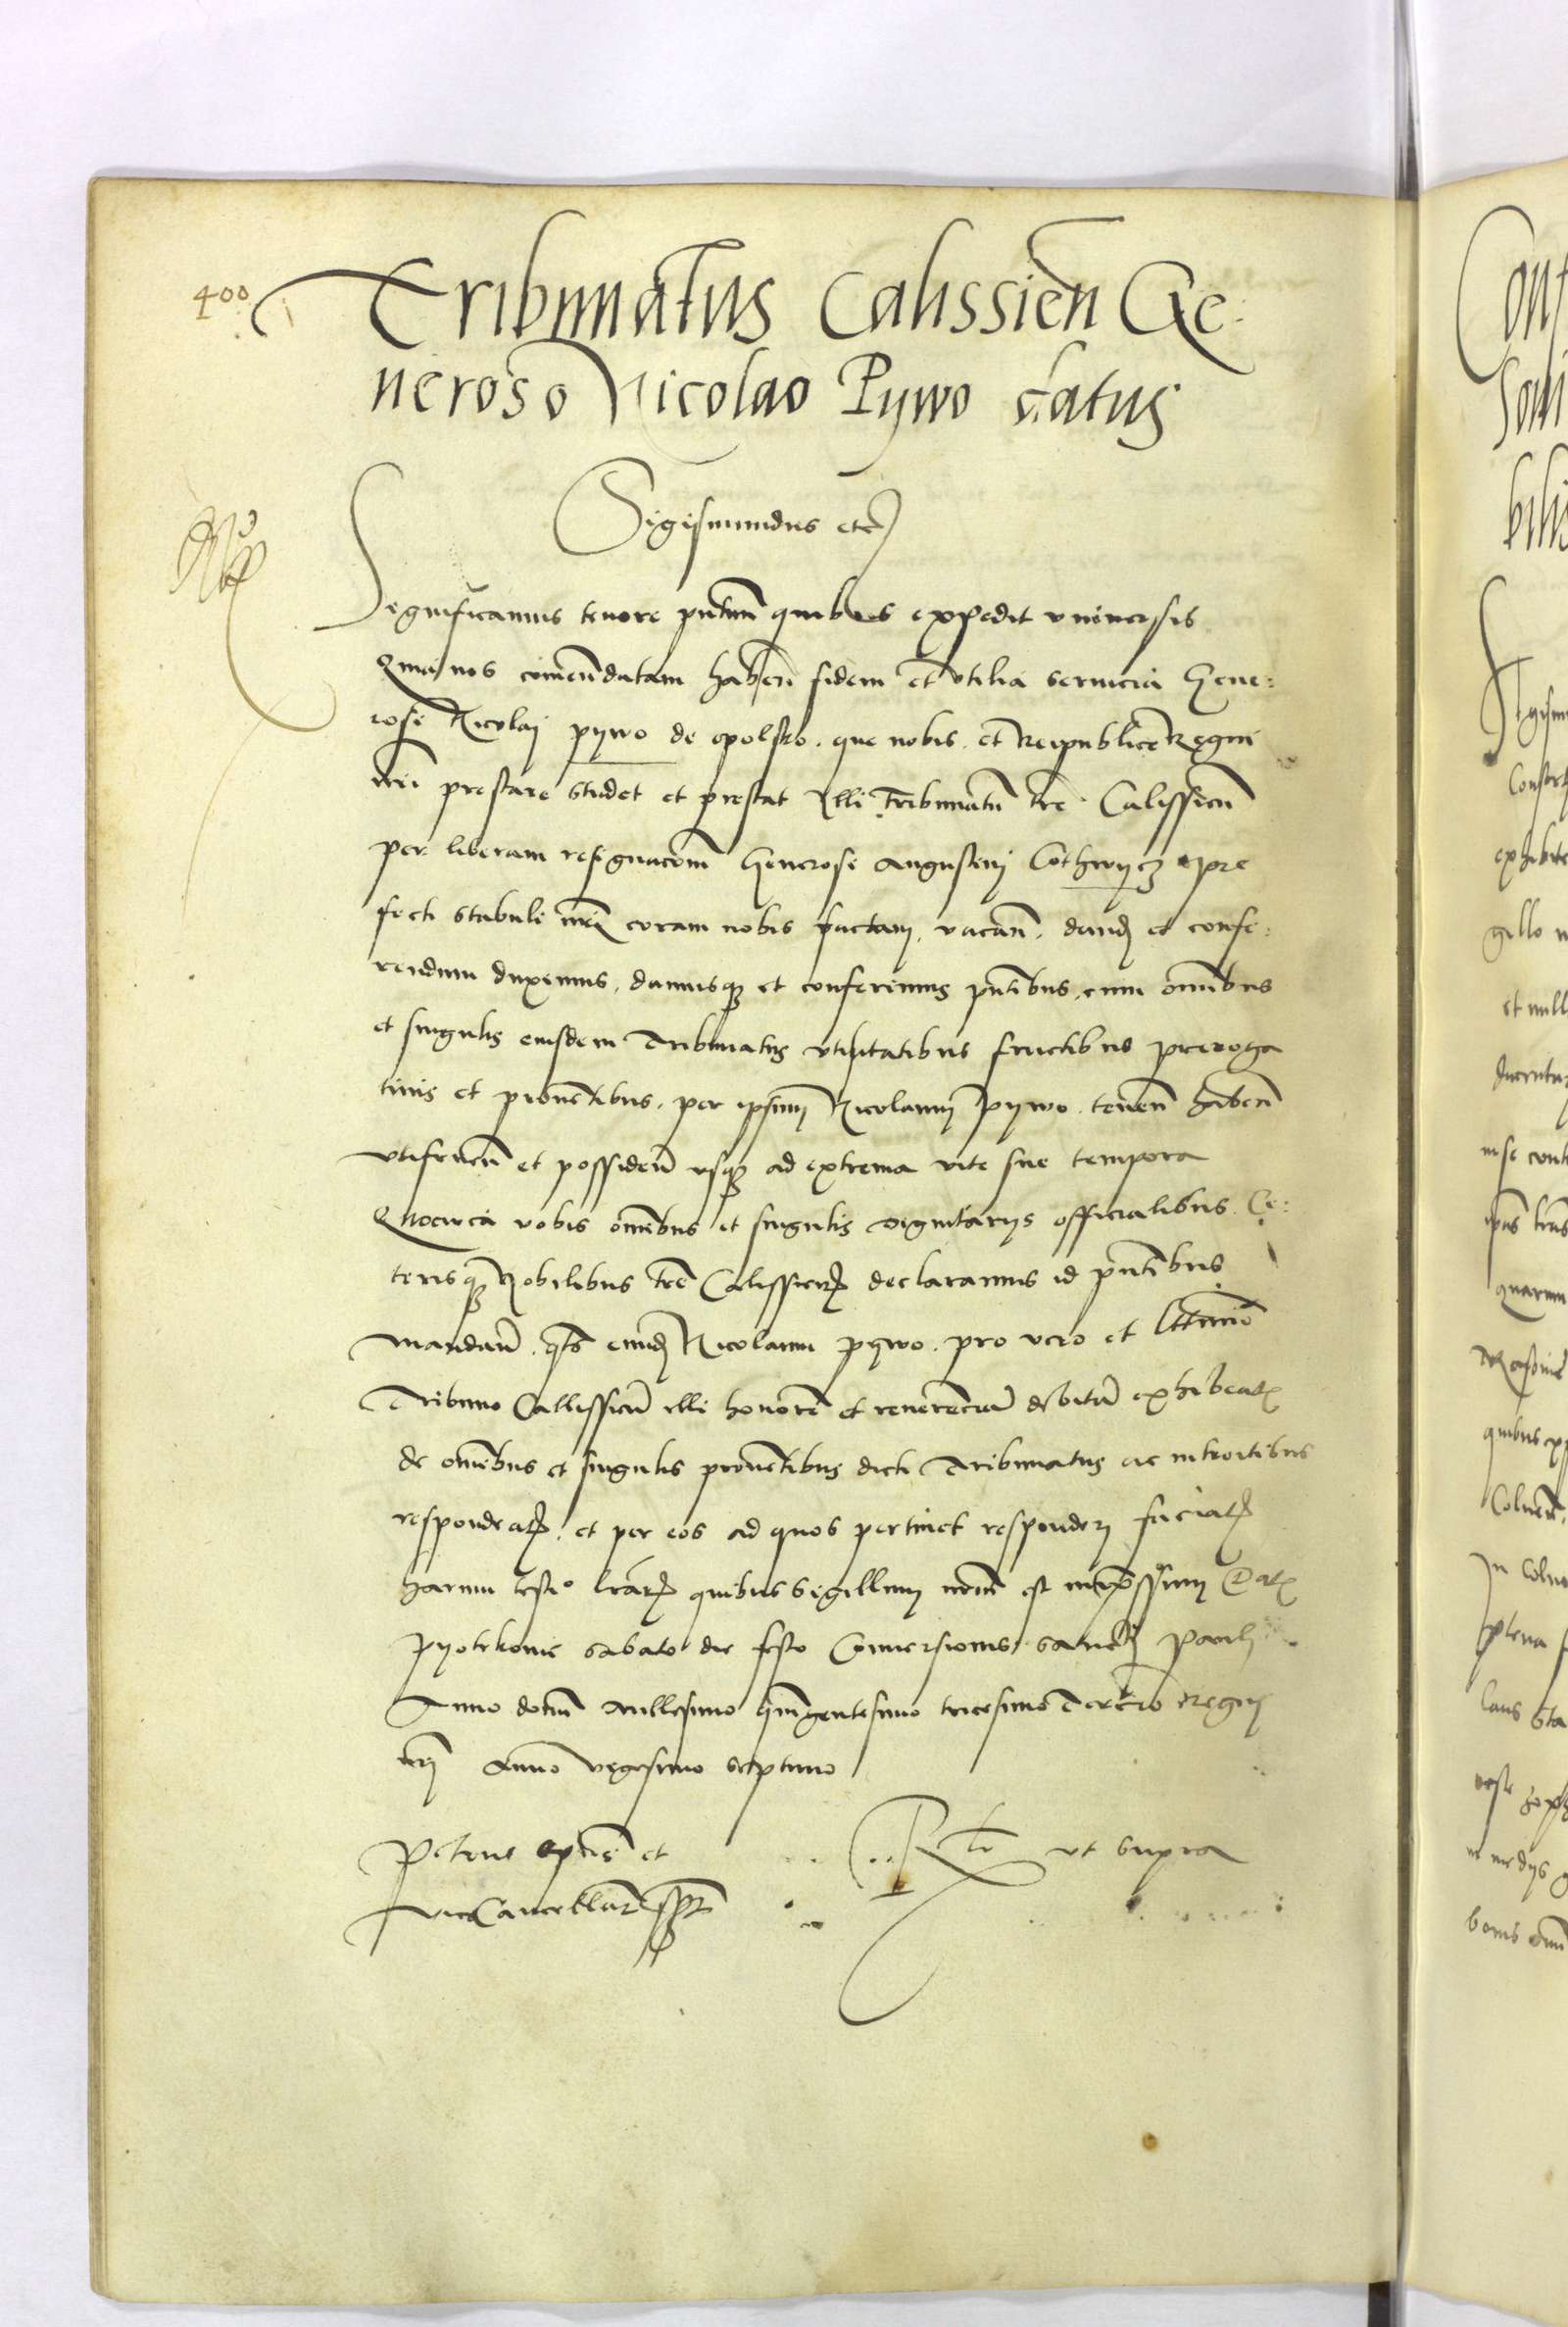 400
Tribunatus Calissien Ge:
neroso Nicolao Pywo datus
Sigismundus etc
Significamus tenore pntium quibus expedit vniuersis
Quia nos comendatam haben fidem et vtilia seruicia Gene:
rosi Nicolaj pywo de opolsko. que nobis. et Reipublice Regni
nri prestare studet et prestat Illi Tribunatu tre Calissien
per liberam resignacom Generosi Augustini Cothwycz pre
fecti stabuli nri coram nobis factam, vacan. dand et confe:
rendum duximus, damusq et conferimus pntibus, cum omibus
et singulis eiusdem Tribunatus vtilitatibus fructibus preroga
tiuis et prouentibus, per ipsum Nicolaum Pywo. tenen haben
vtifruen et possiden vsq ad extrema vite sue tempora
Quocirca vobis omibus et singulis dignitarijs officialibus. Ce:
terisq Nobilibus tre Calissien declaramus id pntibus
mandan. qts eund Nicolaum pywo. pro vero et lttimo
Tribuno Callissien illi honore et reuerencia debita exhibeat
de omibus et singulis prouentibus dicti Tribunatus ac introitibus
respondeat. et per eos ad quos pertinet responderj faciat
harum testio lrar quibus Sigillum nrum est impssum Dat
Pyotrkouie sabato die festo Conuersionis sanctj Pauli
Anno domi Millesimo quingentesimo tricesimo Tercio Regnj
nrj Anno vigesimo septimo
Petrus epus et
Vicecancellar sspt
Rlo vt supra